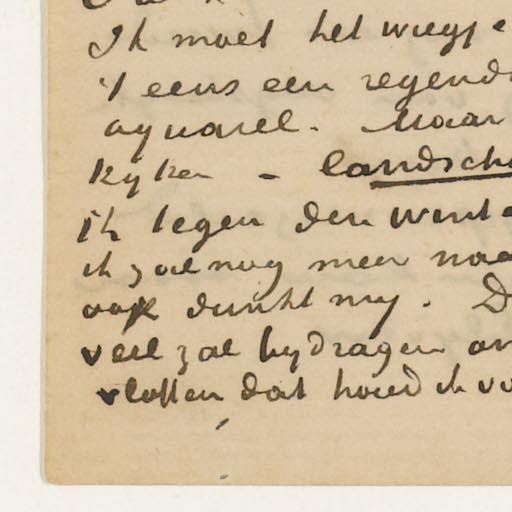 Ik moet het wiegje
't eens een regend
aquarel. Maar
kyken – landsch
ik tegen den wint
ik zal nog meer naa
ook dunkt my. D
veel zal bydragen om
vlotten dat houd ik vo